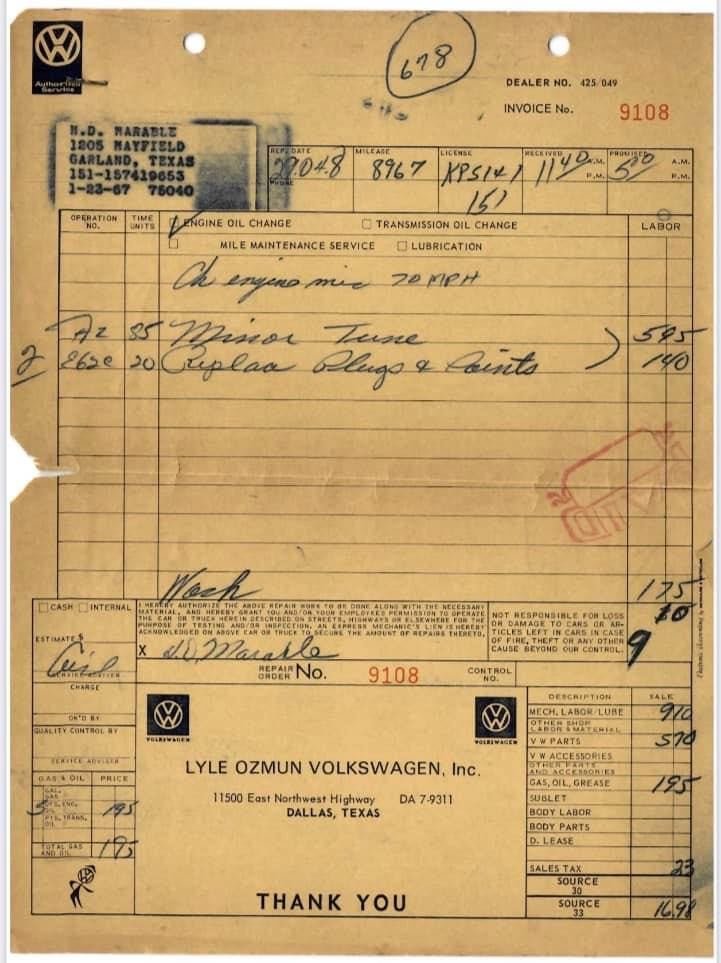 678
Authorized
Service
DEALER NO. 425/049
INVOICE No. 9108
H.D. MARABLE
1205 MAYFIELD
GARLAND, TEXAS
151-157419653
1-23-67 75040
REP. DATE MILEAGE LICENSE RECEIVED PROMISED
29048 8967 KPS141 1140 A.M. 500 A.M.
PHONE P.M. P.M.
151
OPERATION NO. TIME UNITS ENGINE OIL CHANGE TRANSMISSION OIL CHANGE LABOR
MILE MAINTENANCE SERVICE LUBRICATION
Ch engine mis 70 MPH
A2 85 Minor Tune 595
2 E62c 20 Replace Plugs & Points 140
PAID
Wash 175
CASH INTERNAL
I HEREBY AUTHORIZE THE ABOVE REPAIR WORK TO BE DONE ALONG WITH THE NECESSARY
MATERIAL, AND HEREBY GRANT YOU AND/OR YOUR EMPLOYEES PERMISSION TO OPERATE
THE CAR OR TRUCK HEREIN DESCRIBED ON STREETS, HIGHWAYS OR ELSEWHERE FOR THE
PURPOSE OF TESTING AND/OR INSPECTION. AN EXPRESS MECHANIC'S LIEN IS HEREBY
ACKNOWLEDGED ON ABOVE CAR OR TRUCK TO SECURE THE AMOUNT OF REPAIRS THERETO.
NOT RESPONSIBLE FOR LOSS
OR DAMAGE TO CARS OR AR-
TICLES LEFT IN CARS IN CASE
OF FIRE, THEFT OR ANY OTHER
CAUSE BEYOND OUR CONTROL.
9 10
ESTIMATE $
X H D Marable
SERVICE ADVISER
CHARGE
REPAIR ORDER No. 9108 CONTROL NO.
OK'D BY
QUALITY CONTROL BY
SERVICE ADVISER
GAS & OIL PRICE
GAL. GAS
5 QTS. ENG. OIL 195
PTS. TRANS. OIL
TOTAL GAS AND OIL 195
VOLKSWAGEN VOLKSWAGEN
LYLE OZMUN VOLKSWAGEN, Inc.
11500 East Northwest Highway DA 7-9311
DALLAS, TEXAS
THANK YOU
DESCRIPTION SALE
MECH. LABOR/LUBE 910
OTHER SHOP LABOR & MATERIAL
VW PARTS 570
VW ACCESSORIES
OTHER PARTS AND ACCESSORIES
GAS, OIL, GREASE 195
SUBLET
BODY LABOR
BODY PARTS
D. LEASE
SALES TAX 23
SOURCE 30
SOURCE 33 16.98